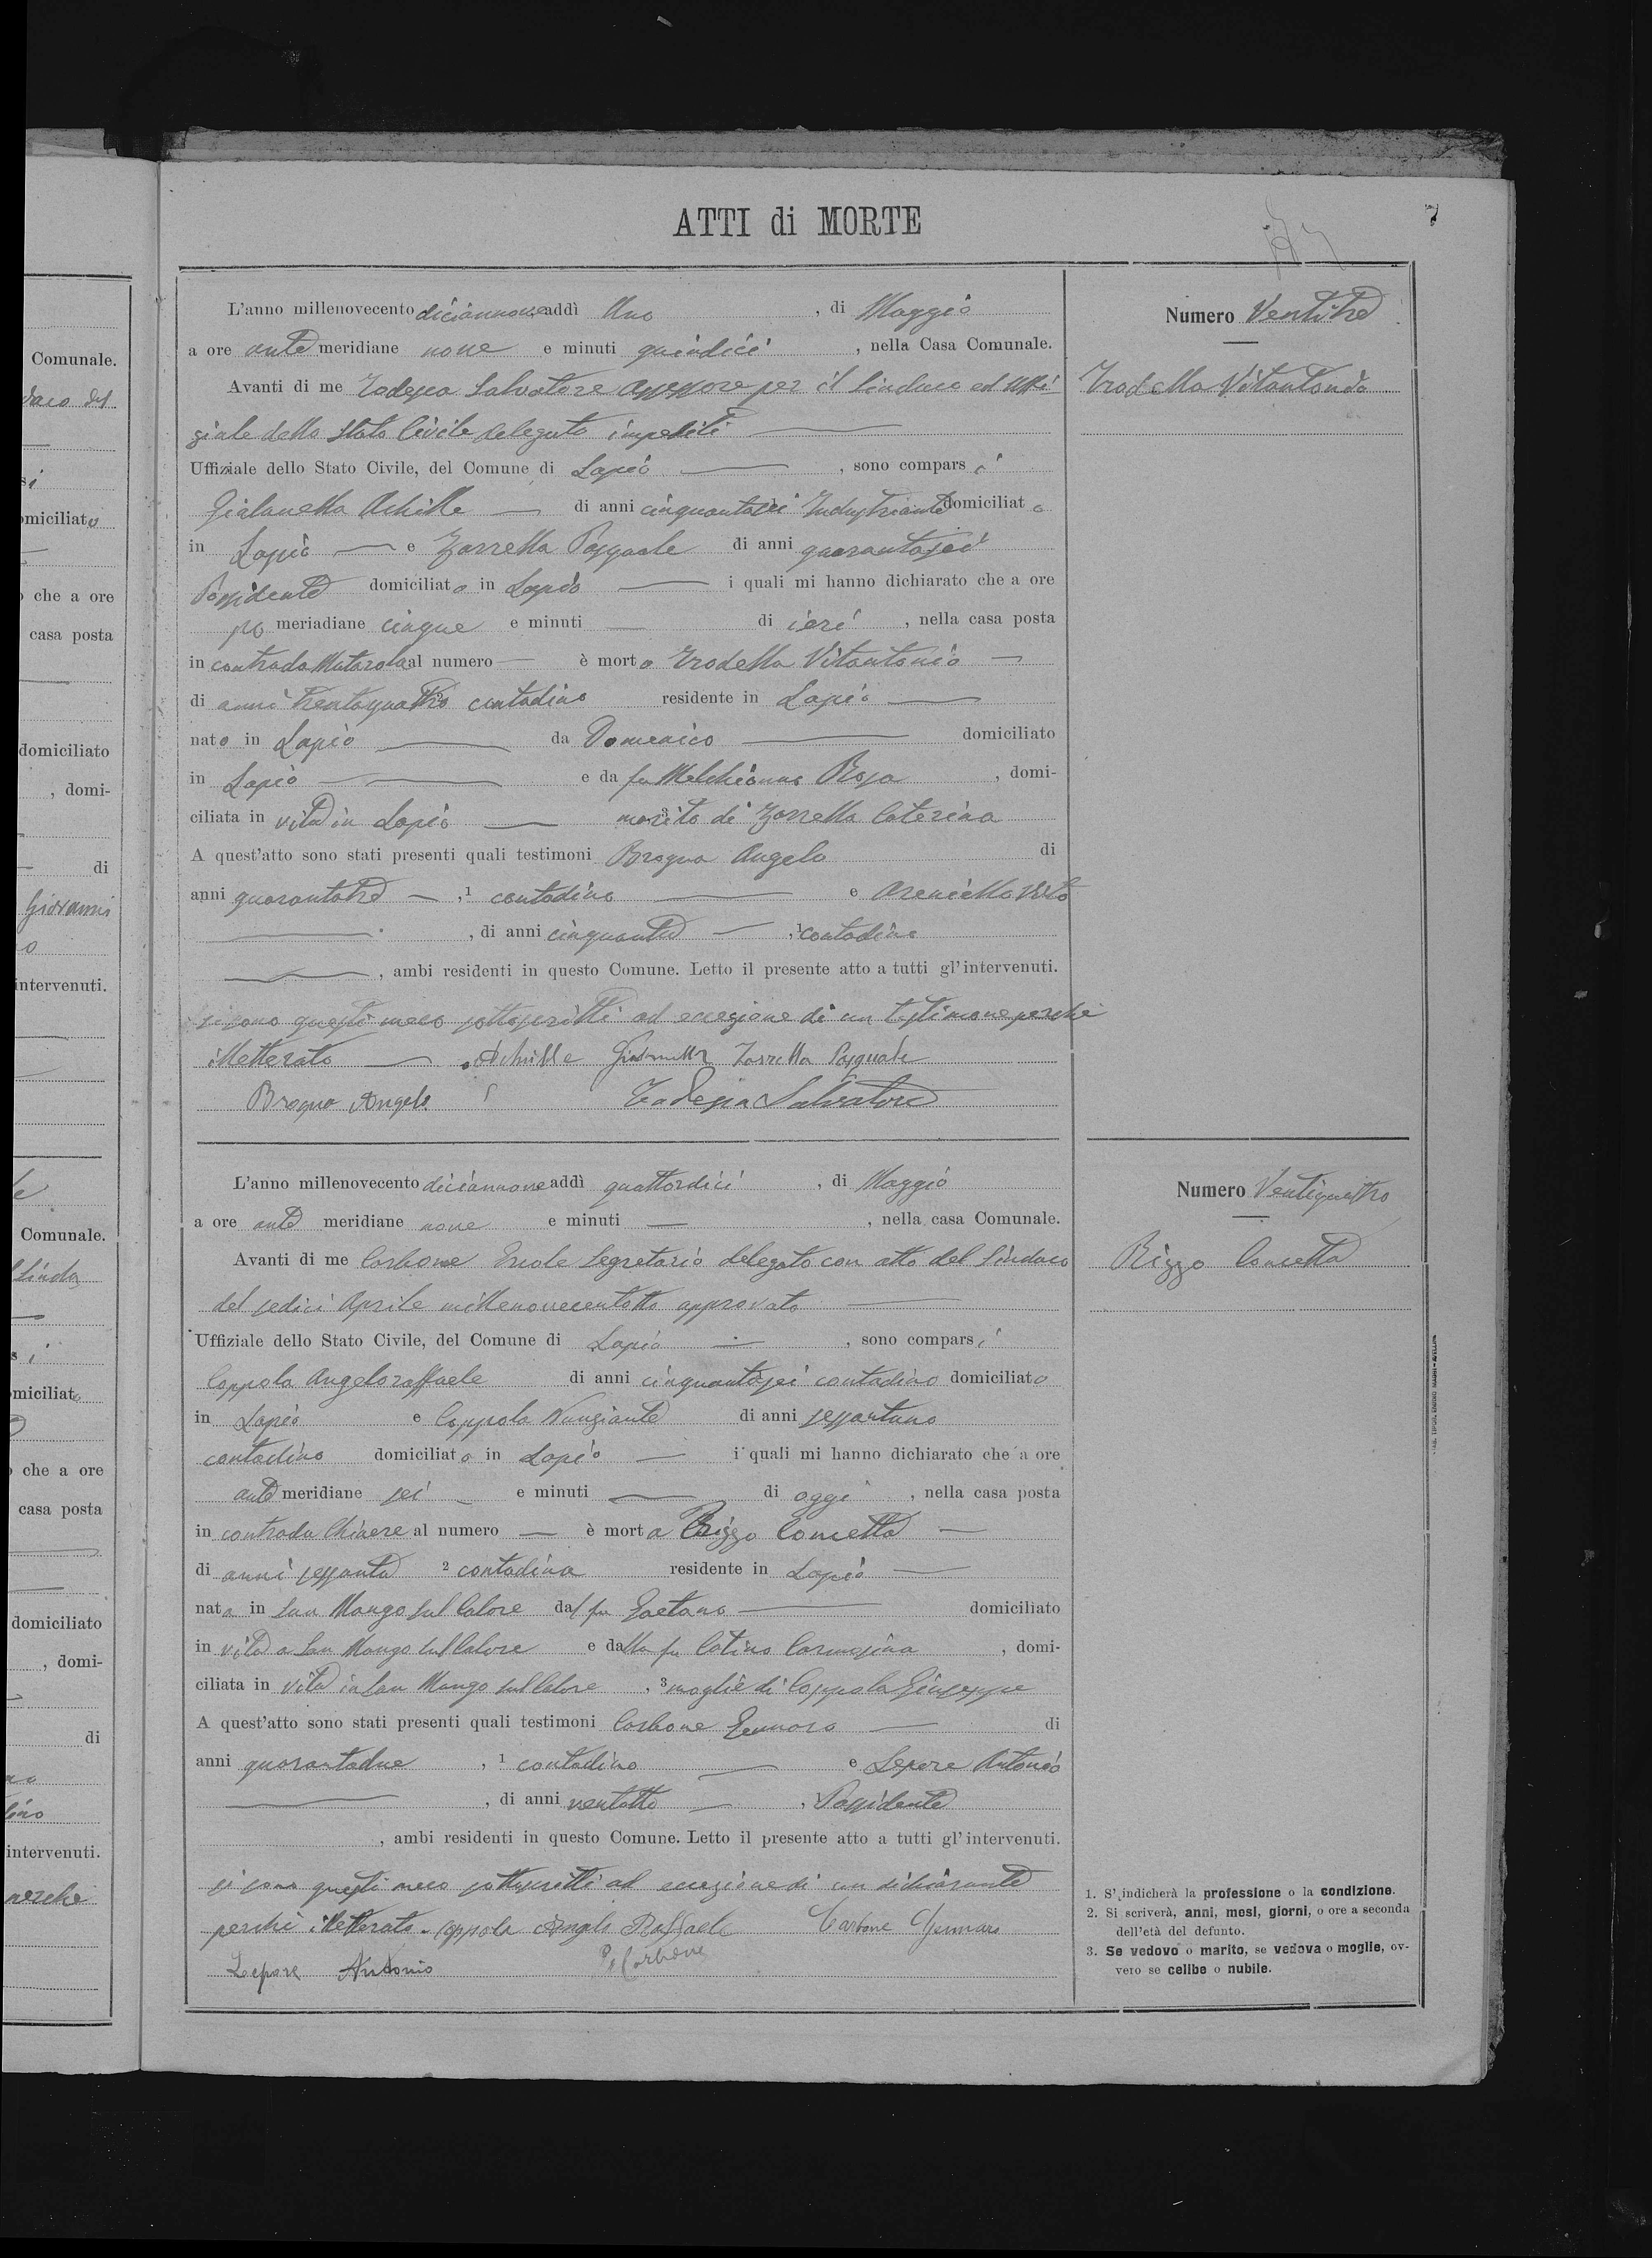 ATTI di MORTE
7
L'anno millenovecento diciannove addì Uno, di Maggio
a ore ante meridiane nove e minuti quindici, nella Casa Comunale.
Avanti di me Todesca Salvatore Assessore per il Sindaco ed Uffi-
ziale dello Stato Civile delegato impediti
Uffiziale dello Stato Civile, del Comune di Lapio, sono comparsi
Gialanella Achille di anni Industriante domiciliato
in Lapio e Zarrella Pasquale di anni quarantasei
Possidente domiciliato in Lapio i quali mi hanno dichiarato che a ore
po meriadiane cinque e minuti — di ieri, nella casa posta
in contrada al numero — è morto Trodella Vitantonio
di anni trentaquattro contadino residente in Lapio
nato in Lapio da Domenico domiciliato
in Lapio e da fu Melchionna Rosa, domi-
ciliata in vita in Lapio marito di Zarrella Caterina
A quest'atto sono stati presenti quali testimoni Brogna Angelo di
anni quarantatre, 1 contadino e Areniello Vito
, di anni cinquanta, 1 contadino
, ambi residenti in questo Comune. Letto il presente atto a tutti gl'intervenuti.
si sono questi meco sottoscritti ad eccezione di un testimone perchè
illetterato Achille Gialanella Zarrella Pasquale
Brogna Angelo Todesca Salvatore
Numero Ventitre
Trodella Vitantonio
L'anno millenovecento diciannove addì quattordici, di Maggio
a ore ante meridiane nove e minuti —, nella casa Comunale.
Avanti di me Carbone Ercole Segretario delegato con atto del Sindaco
del sedici Aprile millenovecentotto approvato
Uffiziale dello Stato Civile, del Comune di Lapio, sono comparsi
Coppola Angeloraffaele di anni cinquantasei contadino domiciliato
in Lapio e Coppola Nunziante di anni sessantuno
contadino domiciliato in Lapio i quali mi hanno dichiarato che a ore
ante meridiane sei e minuti — di oggi, nella casa posta
in contrada Chiaere al numero — è morta Rizzo Concetta
di anni sessanta 2 contadina residente in Lapio
nata in San Mango sul Calore dal fu Gaetano domiciliato
in vita a San Mango sul Calore e dalla fu Cotino Carmosina, domi-
ciliata in vita in San Mango sul Calore, 3 moglie di Coppola Giuseppe
A quest'atto sono stati presenti quali testimoni Carbone Gennaro di
anni quarantadue, 1 contadino e Lepore Antonio
, di anni ventotto, 1 Possidente
, ambi residenti in questo Comune. Letto il presente atto a tutti gl'intervenuti.
si sono questi meco sottoscritti ad eccezione di un dichiarante
perchè illetterato. Coppola Angelo Raffaele Carbone Gennaro
Lepore Antonio Carbone
Numero Ventiquattro
Rizzo Concetta
1. S'indicherà la professione o la condizione.
2. Si scriverà, anni, mesi, giorni, o ore a seconda
dell'età del defunto.
3. Se vedovo o marito, se vedova o moglie, ov-
vero se celibe o nubile.
Comunale.
domiciliato
che a ore
casa posta
domiciliato
, domi-
di
Giovanni
intervenuti.
Comunale.
miciliato
che a ore
casa posta
domiciliato
, domi-
di
intervenuti.
perchè